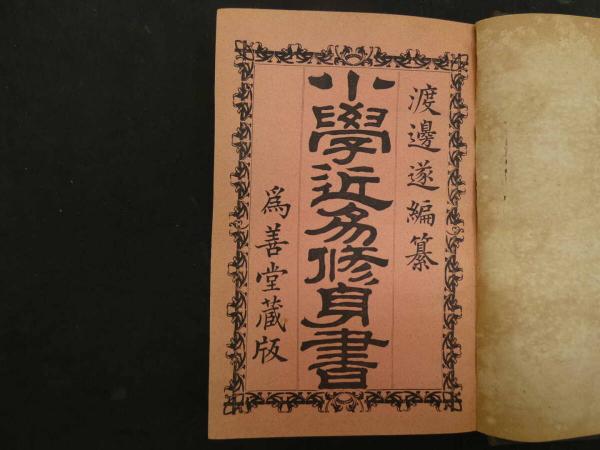 渡邊遂編纂
小學近易修身書
爲善堂藏版